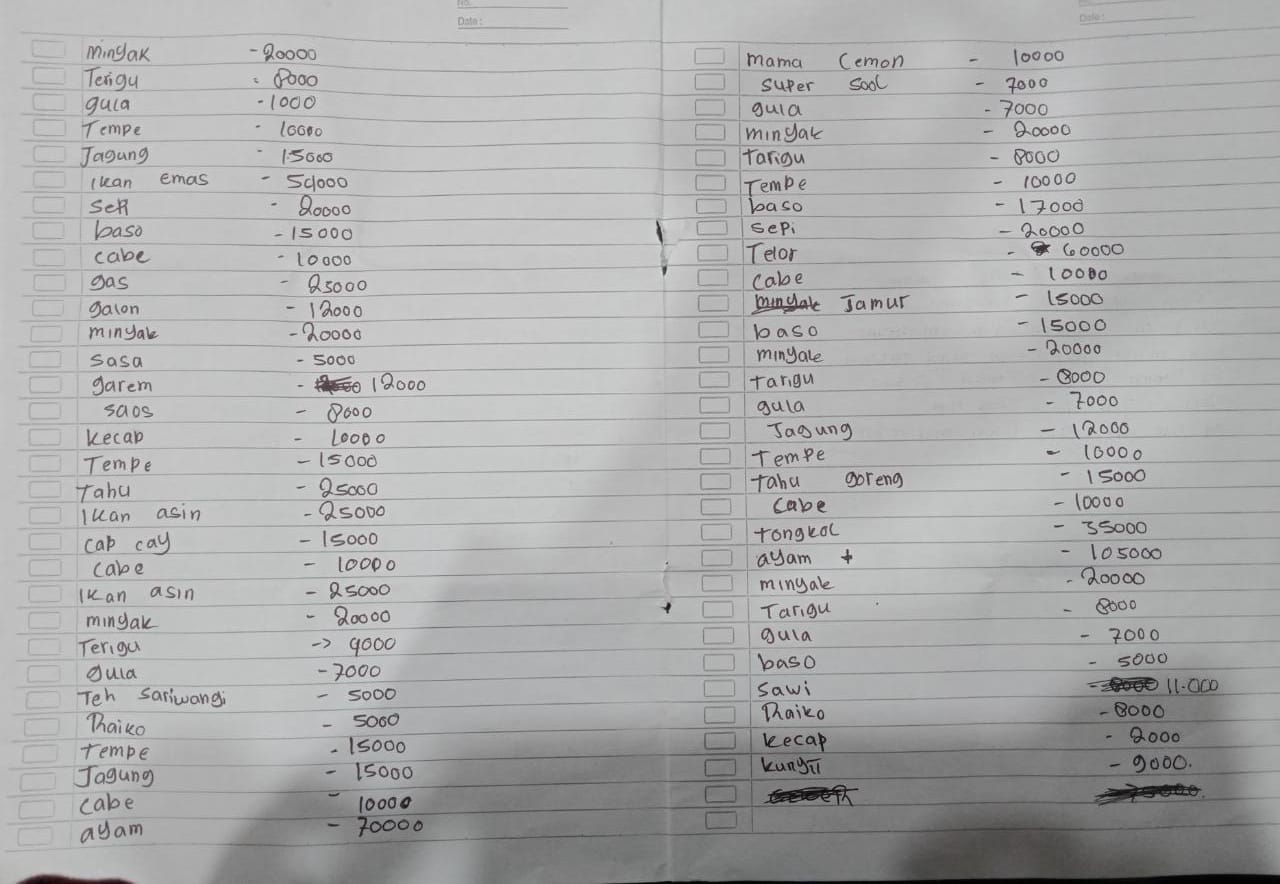 No.
Date:
Minyak - 20000
Terigu = 8000
gula - 1000
Tempe - 10000
Jagung - 15000
Ikan emas - 50000
SePi - 20000
baso - 15000
cabe - 10000
gas - 23000
galon - 12000
minyak - 20000
sasa - 5000
garem - 12000
saos - 8000
kecap - 10000
Tempe - 15000
Tahu - 25000
Ikan asin - 25000
Cap cay - 15000
Cabe - 10000
Ikan asin - 25000
minyak - 20000
Terigu -> 9000
gula - 7000
Teh Sariwangi - 5000
Raiko - 5000
Tempe - 15000
Jagung - 15000
Cabe - 10000
ayam - 70000
Date:
mama Cemon - 10000
super sool - 7000
gula - 7000
minyak - 20000
tarigu - 8000
Tempe - 10000
baso - 17000
sepi - 20000
Telor - 60000
Cabe - 10000
Jamur - 15000
baso - 15000
minyak - 20000
tarigu - 8000
gula - 7000
Jagung - 12000
Tempe - 10000
tahu goreng - 15000
Cabe - 10000
tongkol - 35000
ayam + - 105000
minyak - 20000
Tarigu - 8000
gula - 7000
baso - 5000
Sawi - 11.000
Raiko - 8000
kecap - 2000
- 9000.